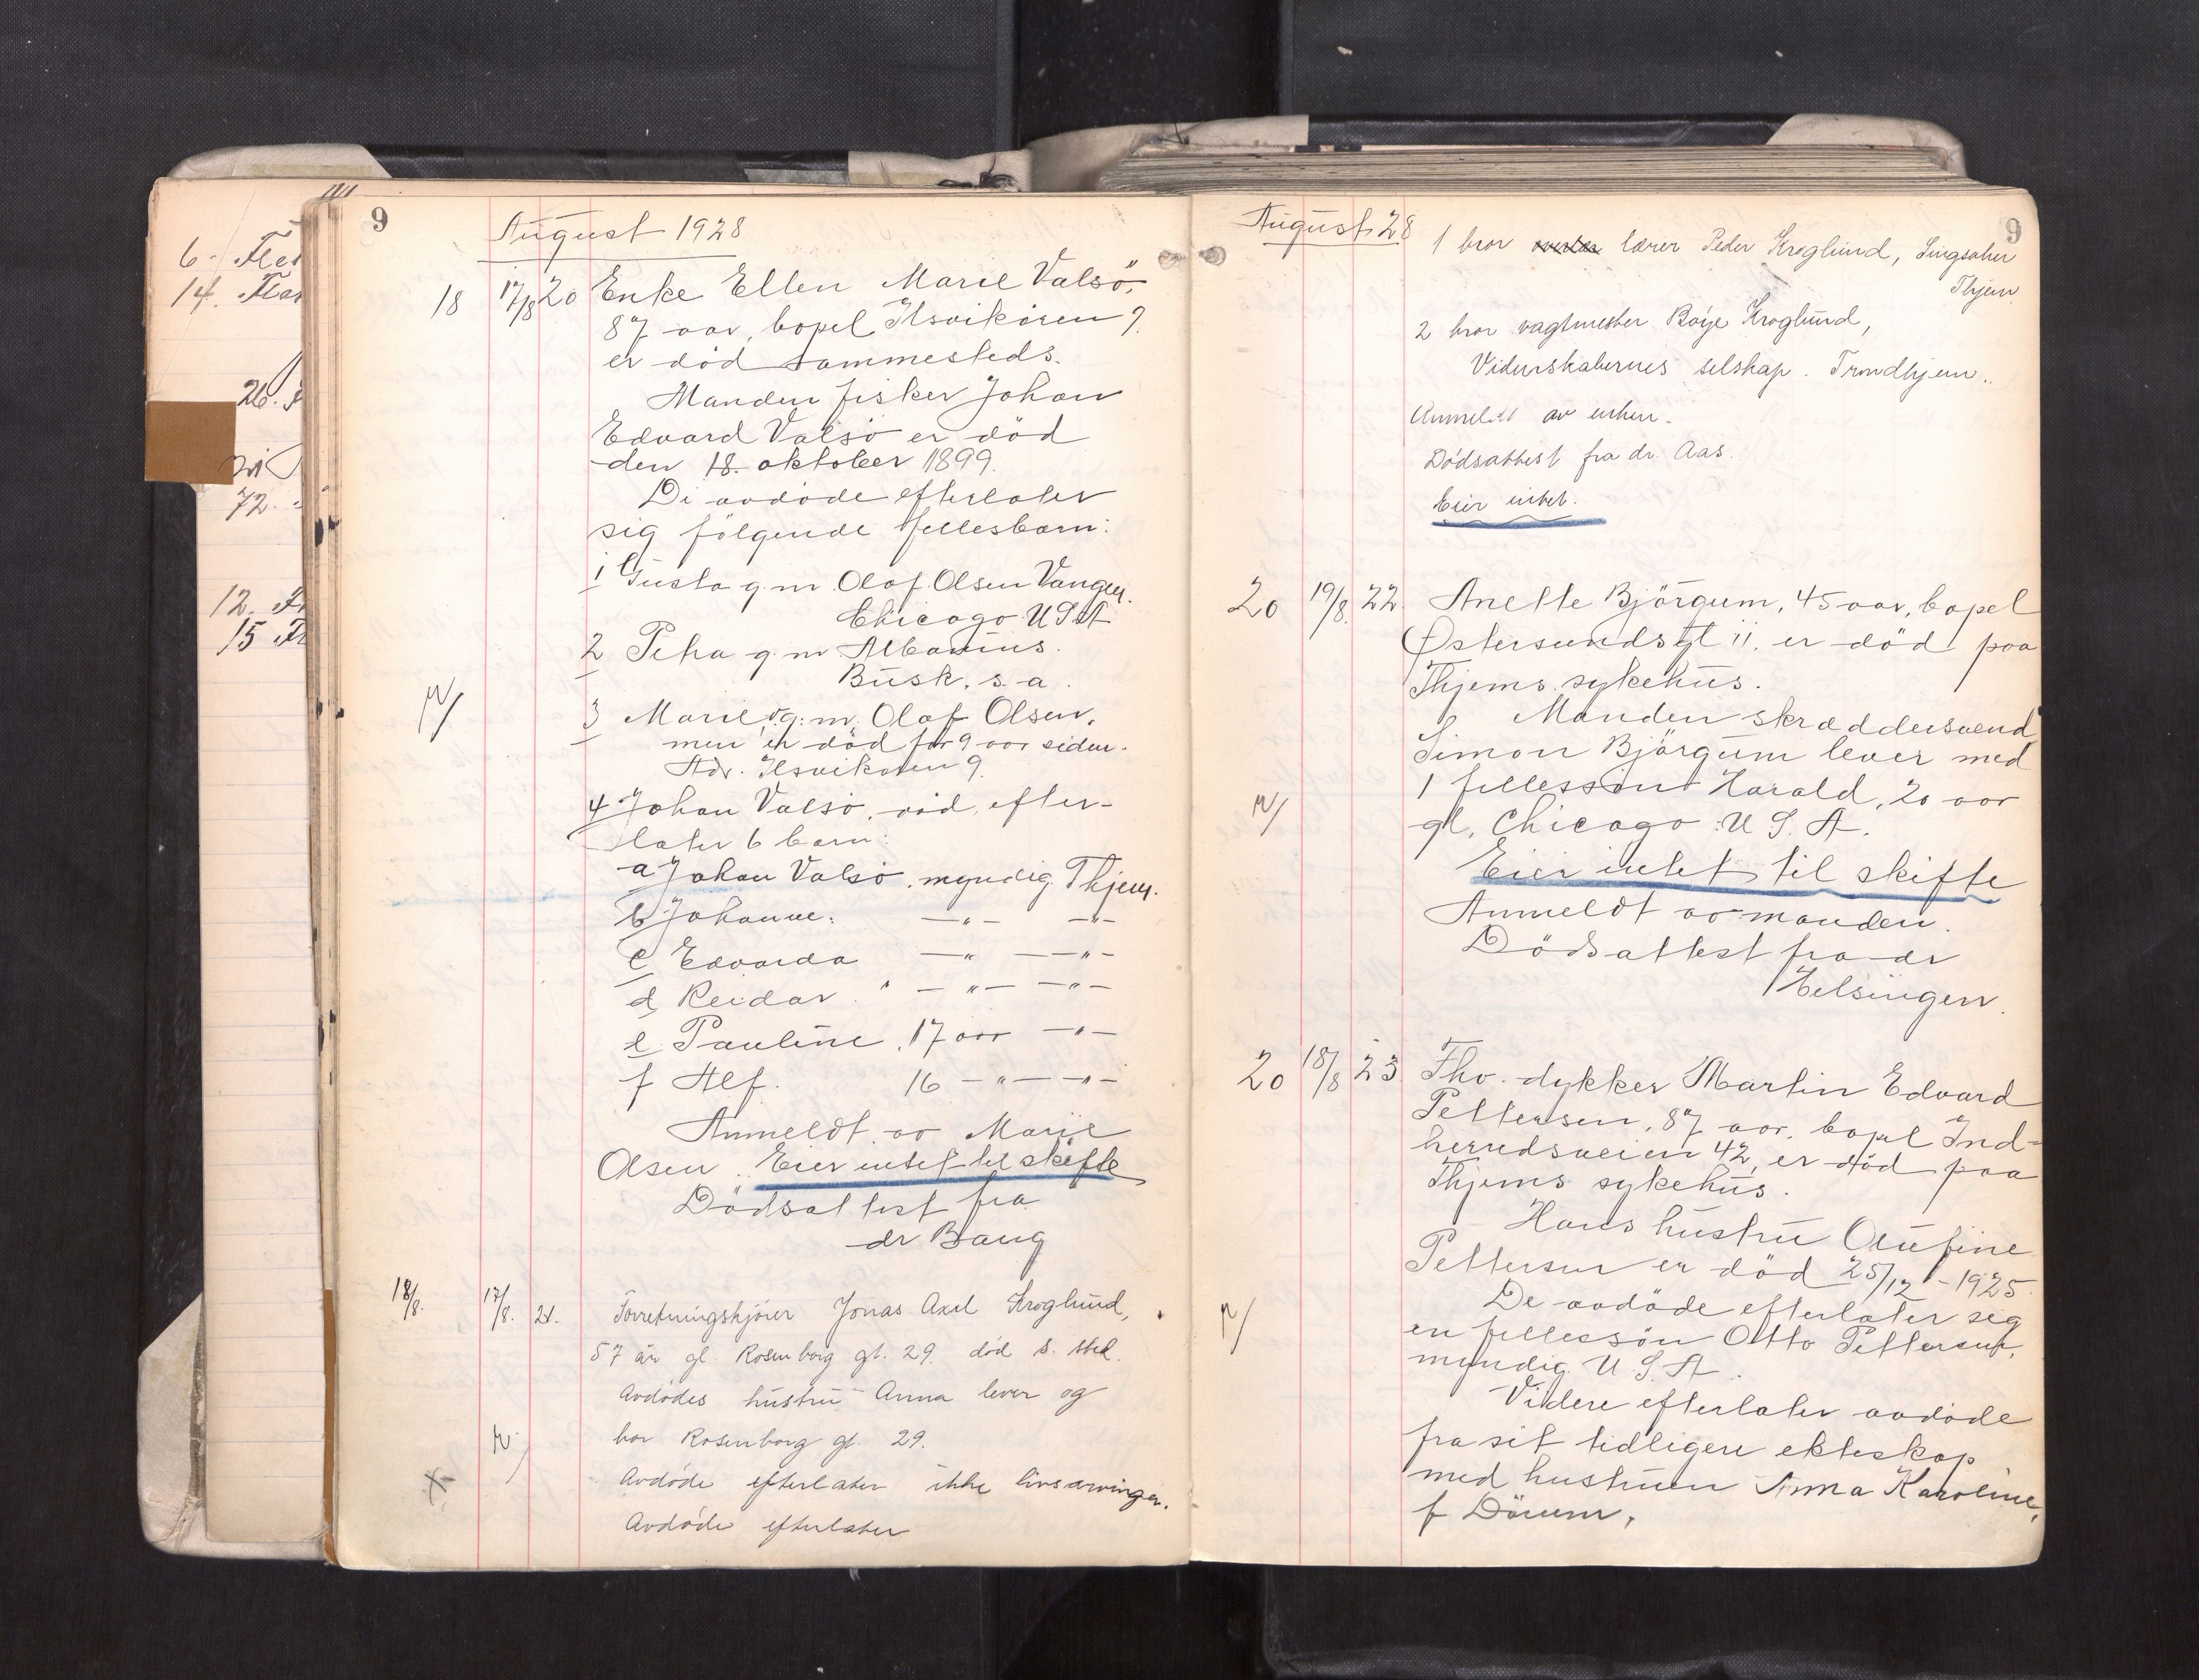 6 -
14.
26.
72. -
12.
15
9
August 1928
18 17/8 20 Enke Ellen Marie Valsö,
87 aar, bopel Ilsvikören 9.
er död sammesteds.
Manden fisker Johan
Edvard Valsö er död
den 18. oktober 1899.
De avdöde efterlater
sig fölgende fellesbarn:
1 Gusta g. m. Olaf Olsen Vangen.
Chicago U S A
2 Petra g. m. Albanus
Busk. s. a.
3 Marie g. m. Olaf Olsen,
men er död for 9 aar siden.
Adr. Ilsvikören 9.
4 Johan Valsö, död, efter-
later 6 barn:
a Johan Valsö, myndig Thjem.
b Johanne: —"— —"—
c Edvarda —"— —"—
d Reidar —"— —"—
e Pauline, 17 aar —"—
f Alf. 16 —"— —"—
Anmeldt av Marie
Olsen. Eier intet til skifte
Dödsattest fra
dr Bang
18/8. 17/8. 21. Forretningskjörer Jonas Axel Kroglund,
57 år gl. Rosenborg gt. 29. död s. sted.
Avdödes hustru Anna lever og
bor Rosenborg gt. 29.
Avdöde efterlater ikke livsarvinger.
Avdöde efterlater
August 28
9
1 bror lærer Peder Kroglund, Singsaker
Thjem
2 bror vagtmester Böye Kroglund,
Videnskabernes selskap. Trondhjem.
Anmeldt av enken.
Dödsattest fra dr. Aas.
Eier intet.
20 19/8. 22. Anette Björgum, 45 aar, bopel
Østersundsgt 11. er död paa
Thjems sykehus.
Manden skræddersvend
Simon Björgum lever med
1 fellessön Harald, 20 aar
gl, Chicago U S. A.
Eier intet til skifte
Anmeldt av manden.
Dödsattest fra dr
Helsingen.
20 18/8 23. Fhv. dykker Martin Edvard
Pettersen, 87 aar, bopel Ind-
herredsveien 42, er död paa
Thjems sykehus.
Hans hustru Olufine
Pettersen er död 25/12 - 1925.
De avdöde efterlater sig
en fellessön Otto Pettersen,
myndig U. S. A.
Videre efterlater avdöde
fra sit tidligere ekteskap
med hustruen Anna Karoline,
f Dörum,